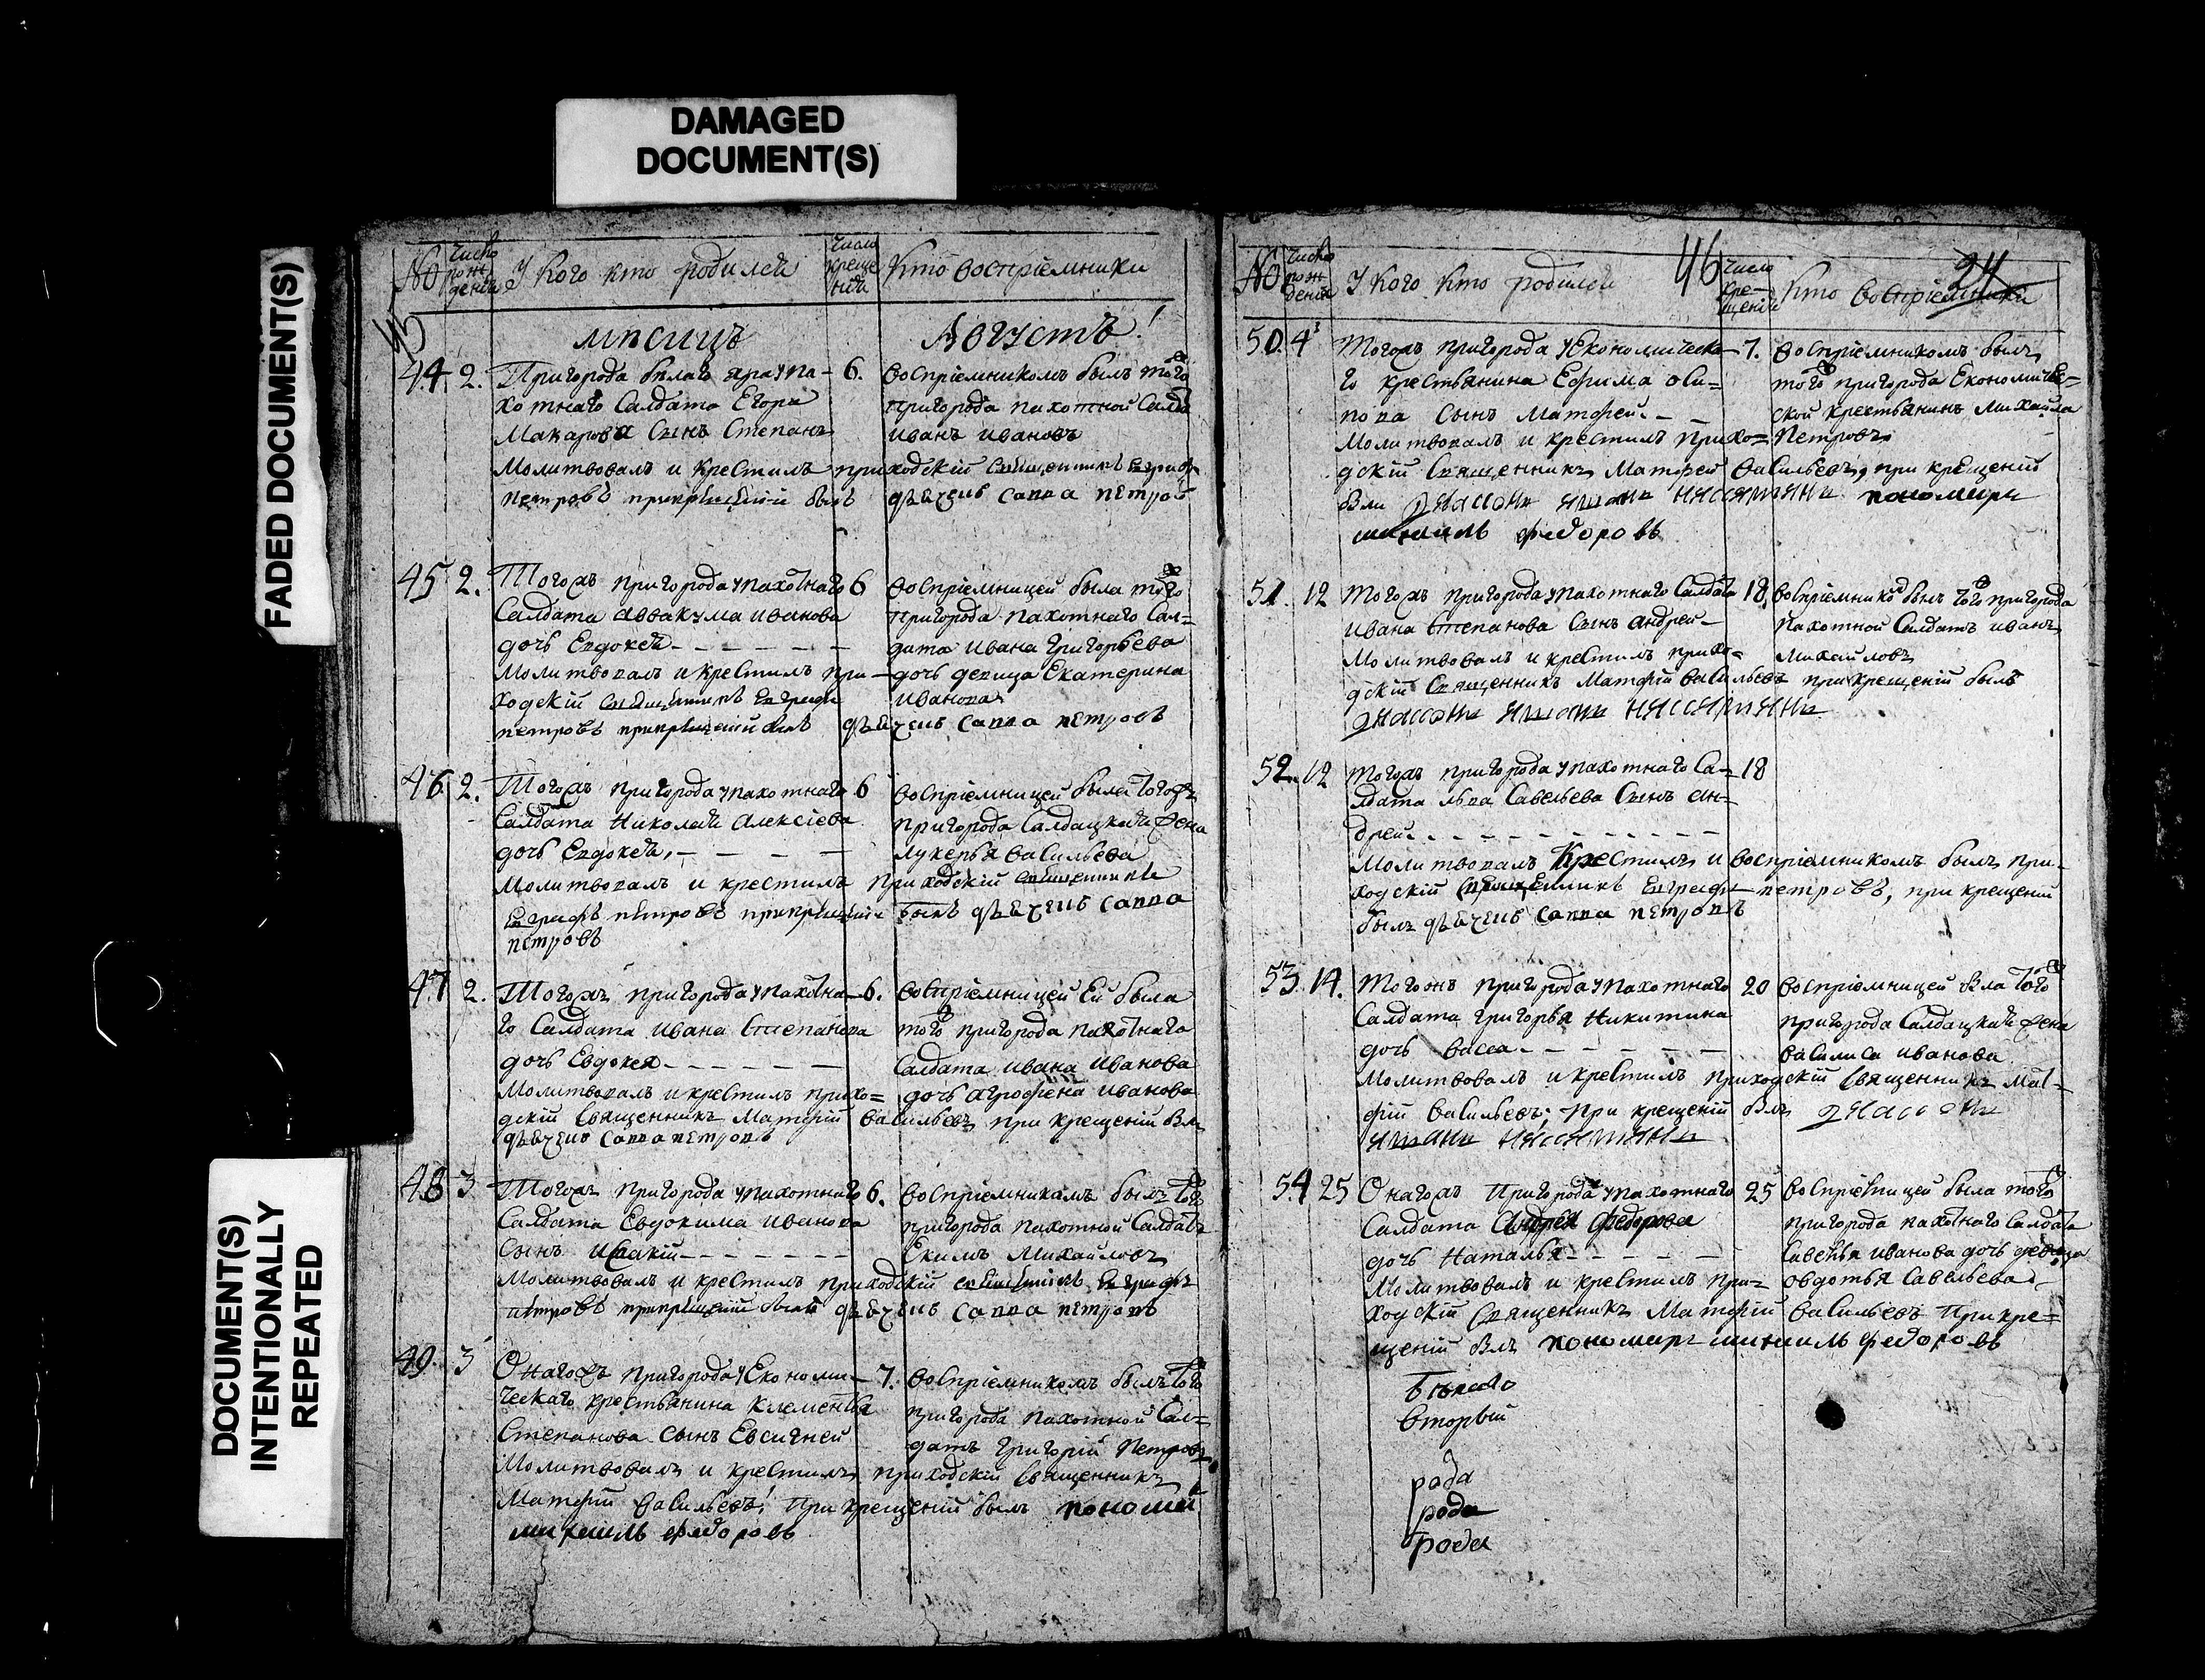 DAMAGED
DOCUMENT(S)
FADED DOCUMENT(S)
DOCUMENT(S)
INTENTIONALLY
REPEATED
45
No
Число рож дения
У кого кто родился
Число креще ния
Кто восприемники
месяцъ Августъ
44. 2.
Пригорода
упа-
хотнаго Салдата Егора
Макарова сынъ Степанъ
6.
восприемникомъ былъ того
пригорода пахотной Салда
иванъ ивановъ
Молитвовалъ и крестилъ приходскій священникъ Евграфъ
петровъ при крещении былъ дьячекъ савва петровъ
45 2.
Тогожъ пригорода упахотнаго
Салдата аввакума иванова
дочь Евдокея
6
восприемницей была того
пригорода пахотнаго Сал=
дата ивана григорьева
дочь девица Екатерина
иванова
Молитвовалъ и крестилъ при-
ходскій священникъ Евграфъ
петровъ при крещении былъ дьячекъ савва петровъ
46. 2.
Тогожъ пригорода упахотнаго
Салдата Николая алексіева
дочь Евдокея,
6
восприемницей была тогожъ
пригорода Салдацкая жена
лукерья васильева
Молитвовалъ и крестилъ приходскій священникъ
Евграфъ петровъ при крещении былъ дьячекъ савва
петровъ
47 2.
Тогожъ пригорода упахотна-
го Салдата ивана Степанова
дочь Евдокея
6.
восприемницей Ей была
того пригорода пахотнаго
Салдата ивана иванова
дочь агрофена иванова
Молитвовалъ и крестилъ прихо=
дскій священникъ Матфій васильевъ при крещеній былъ
дьячекъ савва петровъ
48 3
Тогожъ пригорода упахотнаго
Салдата Евдокима иванова
сынъ Исакій
6.
восприемникамъ былъ того
пригорода пахотной Салдатъ
Екимъ Михайловъ
Молитвовалъ и крестилъ приходскій священникъ Евграфъ
петровъ при крещении былъ дьячекъ савва петровъ
49. 3
Онагожъ пригорода у Економи-
ческаго крестьянина клементья
Степанова сынъ Евсигней
7.
восприемникомъ былъ того
пригорода пахотной Сал=
датъ григорій Петровъ
Молитвовалъ и крестилъ приходскій священникъ
Матфій васильевъ! при крещеній былъ пономарь
михаилъ федоровъ
No
Число рож дения
У кого кто родился
46
Число кре- щения
Кто восприемники
24
50. 4
Тогожъ пригорода у Економическа-
го крестьянина Ефима оси=
пова сынъ Матфей.
7.
восприемникомъ былъ
того пригорода Економиче=
ской крестьянинъ Михайла
Петровъ
Молитвовалъ и крестилъ прихо=
дскій священникъ Матфей васильевъ, при крещеній
были
пономарь
михаилъ федоровъ
51. 12
Тогожъ пригорода упахотнаго Салдата
ивана Степанова сынъ андрей
18,
восприемникъ былъ того пригорода
пахотной Салдатъ иванъ
михайловъ
Молитвовалъ и крестилъ прихо=
дскій священникъ Матфій васильевъ при крещеній былъ
52. 12
Тогожъ пригорода упахотнаго Са-
лдата льва Савельева сынъ ан=
дрей.
18
Молитвовалъ крестилъ и восприемникомъ былъ при-
ходскій священникъ Евграфъ петровъ, при крещеній
былъ дьячекъ савва петровъ
53. 14.
Тогожъ пригорода упахотнаго
Салдата григорья Никитина
дочь васса
20
восприемницей была того
пригорода Салдацкая жена
василиса иванова
Молитвовалъ и крестилъ приходскій священникъ Мат-
фій васильевъ; при крещеній былъ
54 25
Онагожъ пригорода упахотнаго
Салдата Андрея Федорова
дочь Наталья
25
восприемницей была того
пригорода пахотнаго Салдата
савелья иванова дочь девица
овдотья савельева
Молитвовалъ и крестилъ при=
ходскій священникъ Матфій васильевъ При кре=
щеній былъ пономарь михаилъ федоровъ
вторый
рода
рода
рода